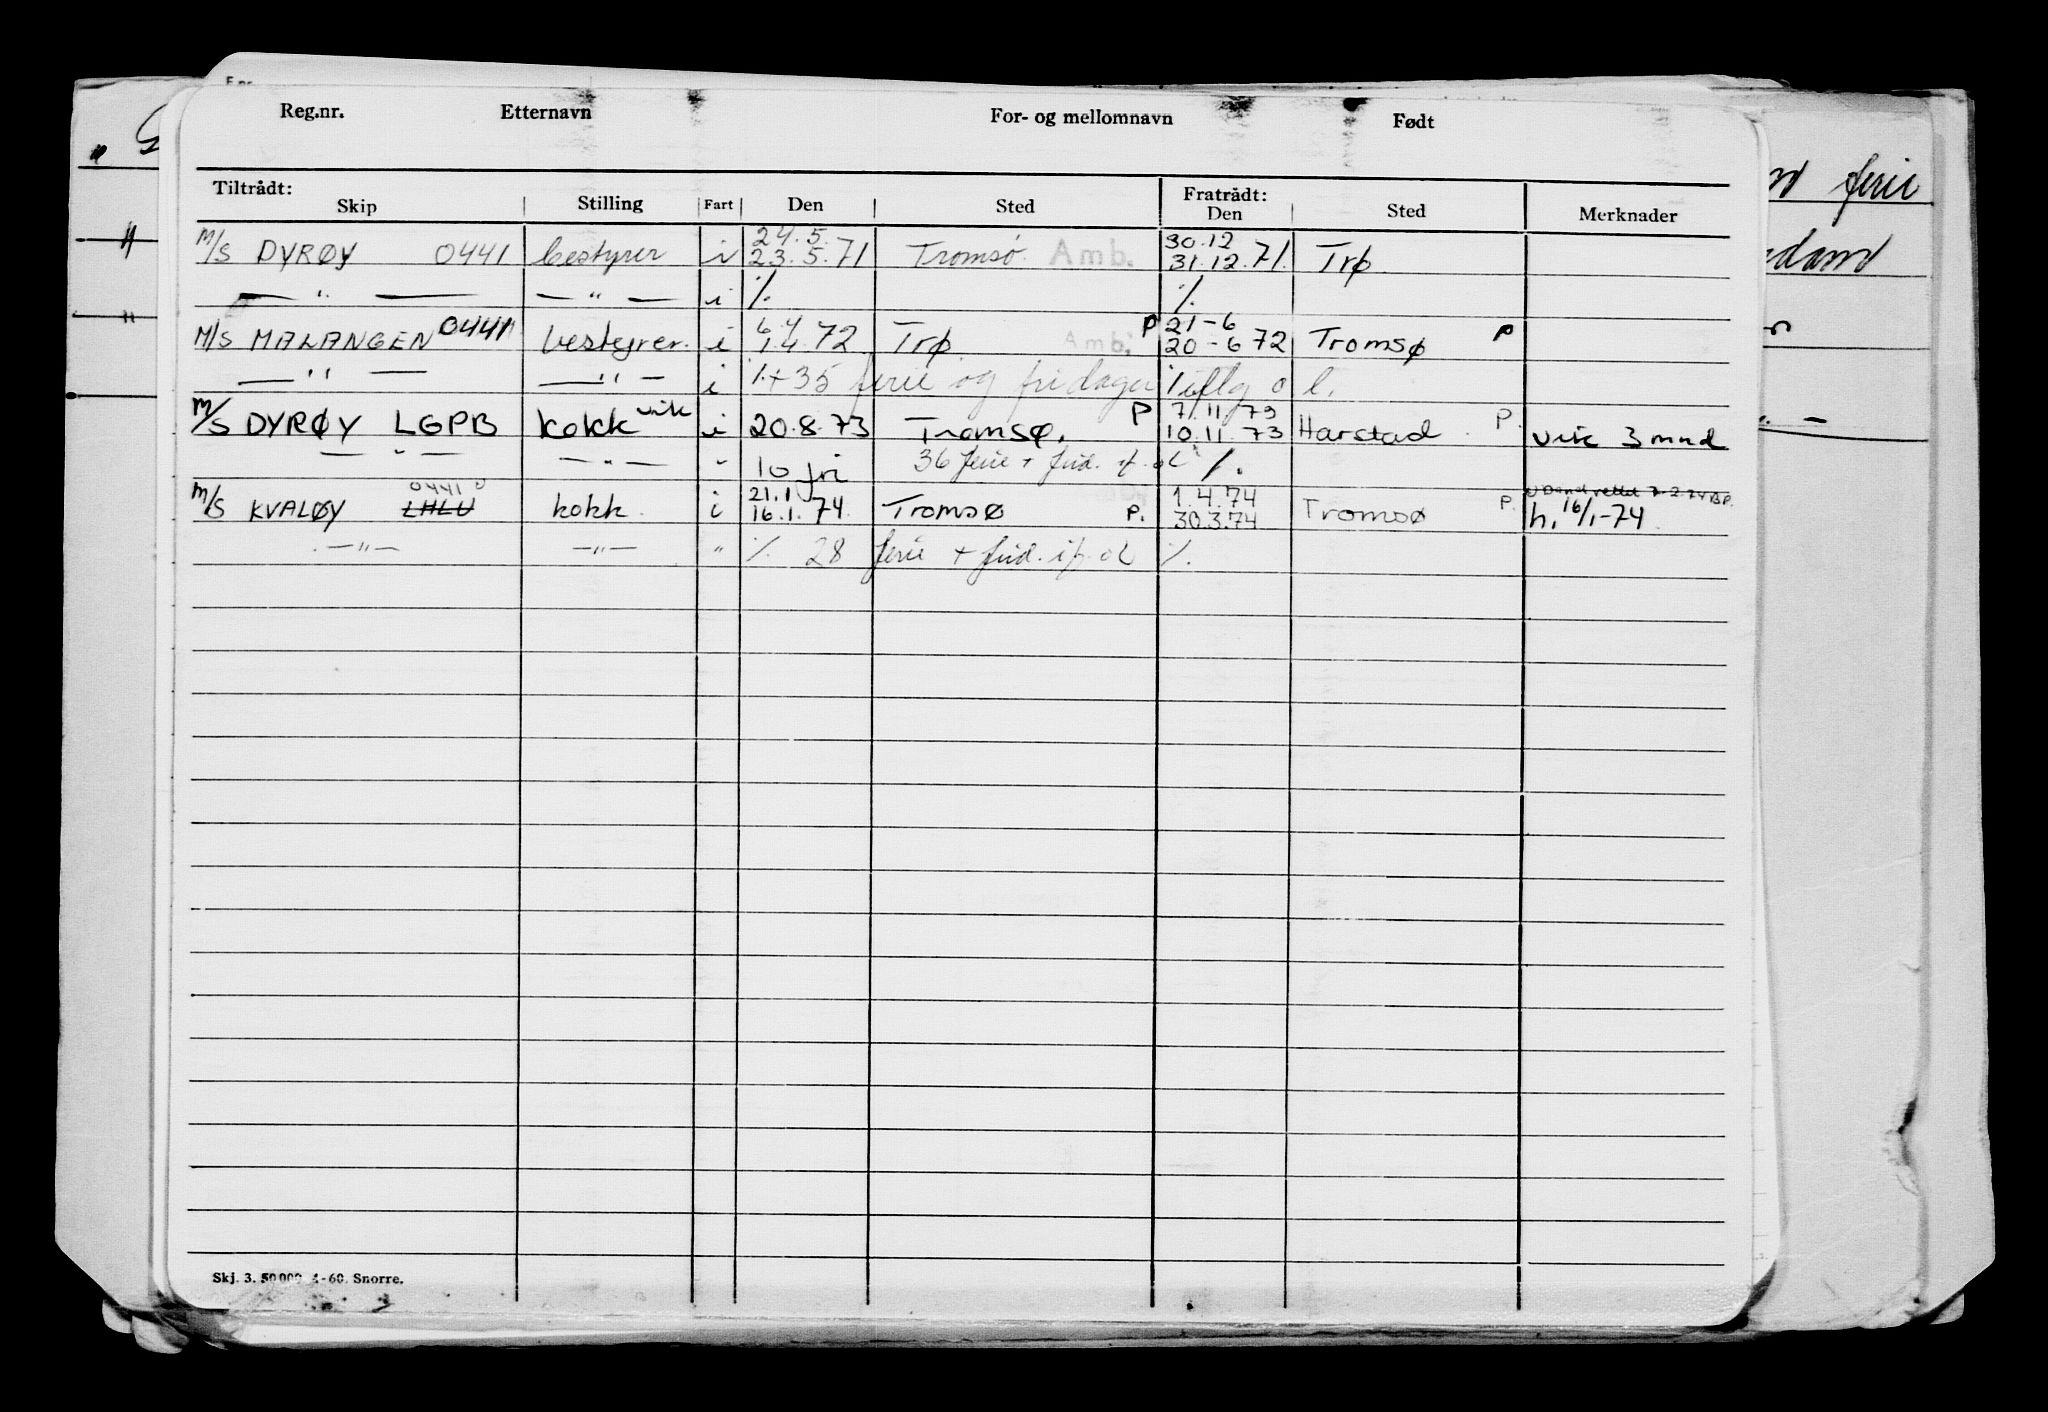 Reg.nr. Etternavn For- og mellomnavn Født
Tiltrådt: Fratrådt:
Skip Stilling Fart Den Sted Den Sted Merknader
24.5. 30.12
M/S DYRØY 0441 bestyrer i 23.5.71 Tromsø Amb. 31.12.71 Trø
— " — — " — i ./. ./.
6.4 21-6
M/S MALANGEN 0441 bestyrer. i 1.4.72 Trø Amb. P 20-6 72 Tromsø P
— " — — " — i ./. + 35 ferie og fridager o l.
7.11.73
M/S DYRØY LGPB kokk vik i 20.8.73 Tromsø. P 10.11.73 Harstad P. vik 3 mnd
— " — — " — " 10 fri 36 ferie + frid. if. ol ./.
0441 21.1 1.4.74
M/S KVALØY LHLU kokk i 16.1.74 Tromsø P. 30.3.74 Tromsø P. h. 16/1-74
— " — — " — " ./. 28 ferie + frid. if. ol ./.
Skj. 3. 50 000 4-60. Snorre.
ferie